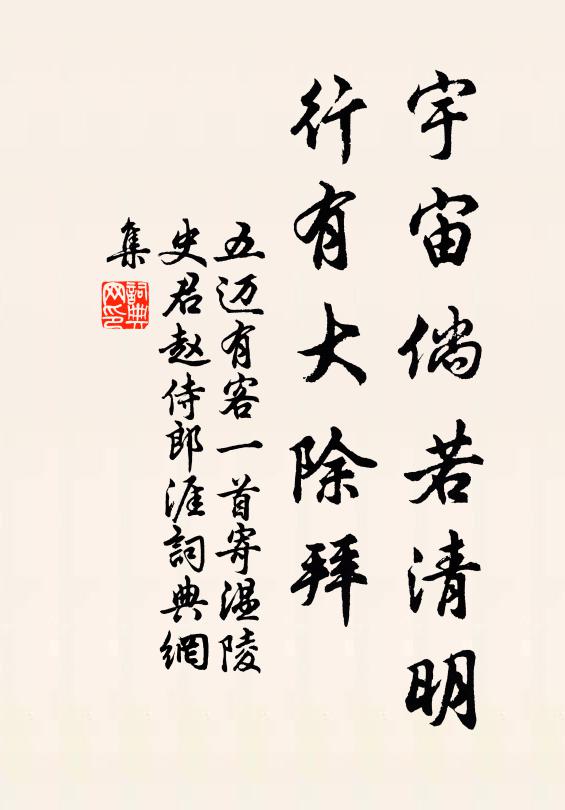 宇宙倘若清明
行有大除拜
五迈有客一首寄温陵
史君赵侍郎涯詞典網
集
詞典
网印